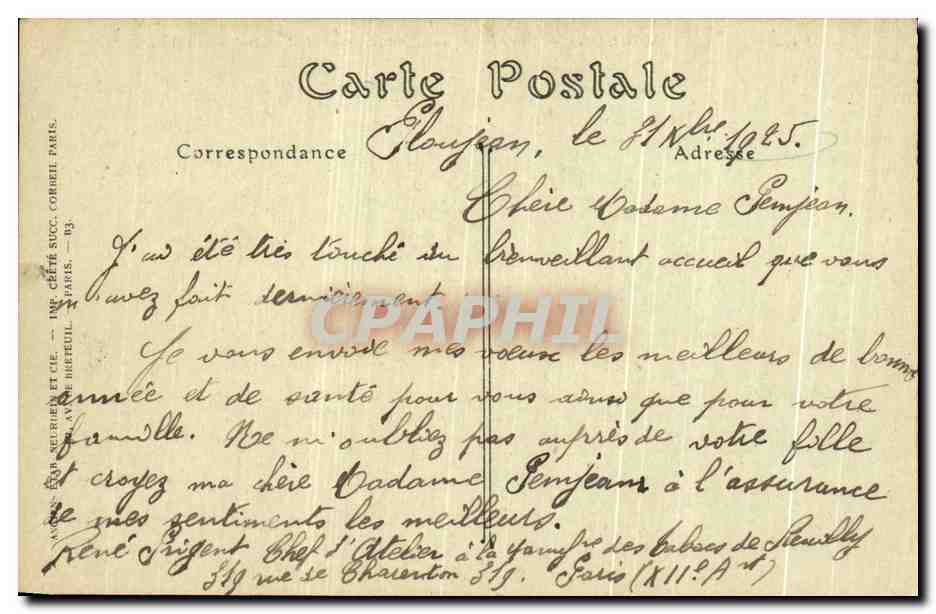 Carte Postale
Correspondance
Adresse
Ploujean, le 31 Xbre 1925.
Chère Madame Pemjean.
J'ai été très touché du bienveillant accueil que vous
m'avez fait dernièrement.
Je vous envoie mes voeux les meilleurs de bonne
année et de santé pour vous ainsi que pour votre
famille. Ne m'oubliez pas auprès de votre fille
et croyez ma chère Madame Pemjean à l'assurance
de mes sentiments les meilleurs.
René Prigent Chef d'Atelier à la Manufre des tabacs de Reuilly
319 rue de Charenton 319. Paris (XIIe Art)
ANCIENS ETAB. NEURDEIN ET CIE. — IMP. CRÉTÉ SUCC. CORBEIL, PARIS.
AVENUE BRETEUIL, PARIS. — B3.
CPAPHIL